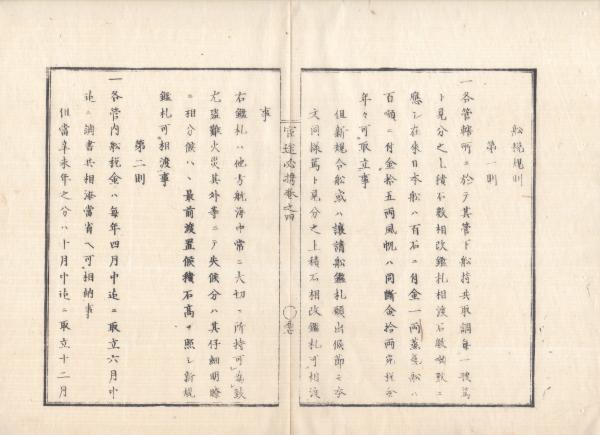 船税規則
第一則
一各管轄所ニ於テ其管下船持共取調毎一艘篤
ト見分之上積石数相改鑑札相渡石数ニ
應シ在来日本船ハ百石ニ付金一両蒸気船ハ
百噸ニ付金拾五両風帆ハ同断金拾両宛税金
年々可取立事
但新規合船或ハ譲請船鑑札願出候節ニ
文同様篤ト見分之上積石相改鑑札可相渡
事
右鑑札ハ他方航海中常ニ大切ニ所持可為致
尤盗難火災其外等ニテ失候分ハ其仔細明瞭
ニ相分候ハヽ最前渡置候積石高ニ照シ新規
鑑札可相渡事
第二則
一各管内船税金ハ毎年四月中迄ニ取立六月中
迄ニ調書共相添當省ヘ可相納事
但當辛未年之分ハ十月中迄ニ取立十二月
官途必携巻之四